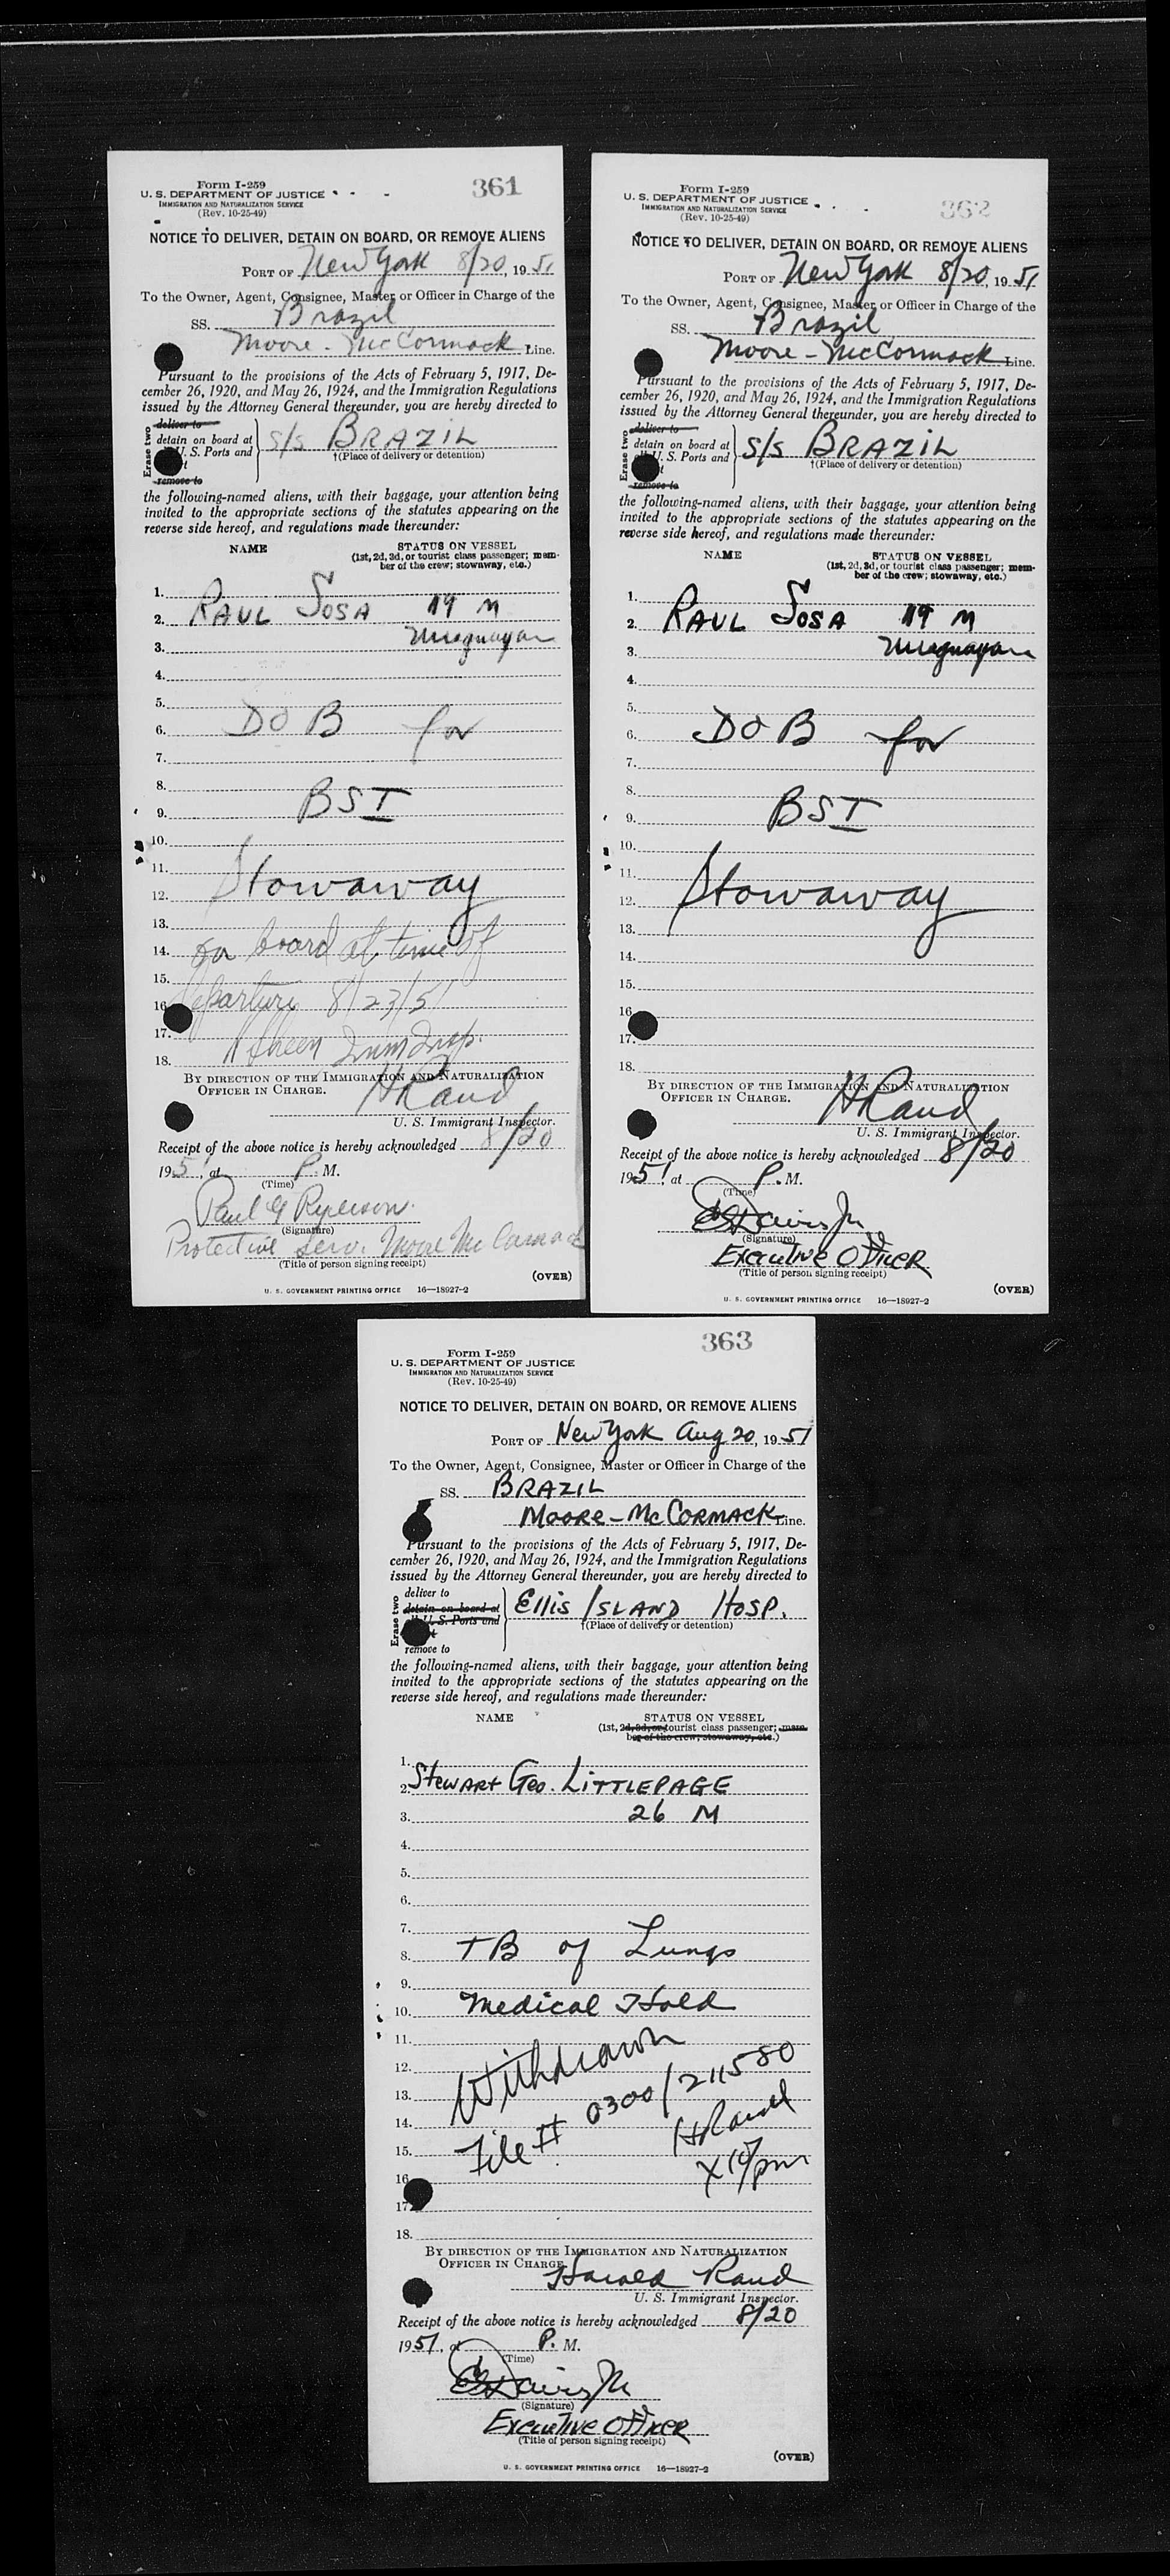 Form I-259
361
U. S. DEPARTMENT OF JUSTICE
IMMIGRATION AND NATURALIZATION SERVICE
(Rev. 10-25-49)
NOTICE TO DELIVER, DETAIN ON BOARD, OR REMOVE ALIENS
PORT OF New York 8/20, 1951
To the Owner, Agent, Consignee, Master or Officer in Charge of the
SS. Brazil
Moore-McCormack Line.
Pursuant to the provisions of the Acts of February 5, 1917, De-
cember 26, 1920, and May 26, 1924, and the Immigration Regulations
issued by the Attorney General thereunder, you are hereby directed to
Erase two
deliver to
detain on board at
U. S. Ports and
remove to
s/s BRAZIL
†(Place of delivery or detention)
the following-named aliens, with their baggage, your attention being
invited to the appropriate sections of the statutes appearing on the
reverse side hereof, and regulations made thereunder:
NAME STATUS ON VESSEL
(1st, 2d, 3d, or tourist class passenger; mem-
ber of the crew; stowaway, etc.)
1.
2. RAUL SOSA 19 M
3. Uruguayan
4.
5.
6. DOB for
7.
8.
9. BSI
10.
11.
12. Stowaway
13.
14. on board at time of
15.
16. departure 8/23/51
17. Imm Insp.
18.
BY DIRECTION OF THE IMMIGRATION AND NATURALIZATION
OFFICER IN CHARGE.
H Rand
U. S. Immigrant Inspector.
Receipt of the above notice is hereby acknowledged 8/20
1951, at P. M.
(Time)
Paul G Ryerson
(Signature)
Protective Serv. Moore McCormack
(Title of person signing receipt)
(OVER)
U. S. GOVERNMENT PRINTING OFFICE 16—18927-2
Form I-259
362
U. S. DEPARTMENT OF JUSTICE
IMMIGRATION AND NATURALIZATION SERVICE
(Rev. 10-25-49)
NOTICE TO DELIVER, DETAIN ON BOARD, OR REMOVE ALIENS
PORT OF New York 8/20, 1951
To the Owner, Agent, Consignee, Master or Officer in Charge of the
SS. Brazil
Moore-McCormack Line.
Pursuant to the provisions of the Acts of February 5, 1917, De-
cember 26, 1920, and May 26, 1924, and the Immigration Regulations
issued by the Attorney General thereunder, you are hereby directed to
Erase two
deliver to
detain on board at
U. S. Ports and
remove to
s/s BRAZIL
†(Place of delivery or detention)
the following-named aliens, with their baggage, your attention being
invited to the appropriate sections of the statutes appearing on the
reverse side hereof, and regulations made thereunder:
NAME STATUS ON VESSEL
(1st, 2d, 3d, or tourist class passenger; mem-
ber of the crew; stowaway, etc.)
1.
2. RAUL SOSA 19 M
3. Uruguayan
4.
5.
6. DOB for
7.
8.
9. BSI
10.
11.
12. Stowaway
13.
14.
15.
16.
17.
18.
BY DIRECTION OF THE IMMIGRATION AND NATURALIZATION
OFFICER IN CHARGE.
H Rand
U. S. Immigrant Inspector.
Receipt of the above notice is hereby acknowledged 8/20
1951, at P. M.
(Time)
Davis Jr
(Signature)
EXECUTIVE OFFICER
(Title of person signing receipt)
(OVER)
U. S. GOVERNMENT PRINTING OFFICE 16—18927-2
Form I-259
363
U. S. DEPARTMENT OF JUSTICE
IMMIGRATION AND NATURALIZATION SERVICE
(Rev. 10-25-49)
NOTICE TO DELIVER, DETAIN ON BOARD, OR REMOVE ALIENS
PORT OF New York Aug 20, 1951
To the Owner, Agent, Consignee, Master or Officer in Charge of the
SS. BRAZIL
MOORE-McCORMACK Line.
Pursuant to the provisions of the Acts of February 5, 1917, De-
cember 26, 1920, and May 26, 1924, and the Immigration Regulations
issued by the Attorney General thereunder, you are hereby directed to
Erase two
deliver to
detain on board at
U. S. Ports and
remove to
Ellis ISLAND HOSP.
†(Place of delivery or detention)
the following-named aliens, with their baggage, your attention being
invited to the appropriate sections of the statutes appearing on the
reverse side hereof, and regulations made thereunder:
NAME STATUS ON VESSEL
(1st, 2d, 3d, or tourist class passenger; mem-
ber of the crew; stowaway, etc.)
1.
2. STEWART GEO. LITTLEPAGE
3. 26 M
4.
5.
6.
7.
8. TB of Lungs
9.
10. Medical Hold
11.
12. Withdrawn
13. 0300/211580
14. File # H Rand
15.
16.
17.
18.
BY DIRECTION OF THE IMMIGRATION AND NATURALIZATION
OFFICER IN CHARGE.
Harold Rand
U. S. Immigrant Inspector.
Receipt of the above notice is hereby acknowledged 8/20
1951, at P. M.
(Time)
Davis Jr
(Signature)
EXECUTIVE OFFICER
(Title of person signing receipt)
(OVER)
U. S. GOVERNMENT PRINTING OFFICE 16—18927-2